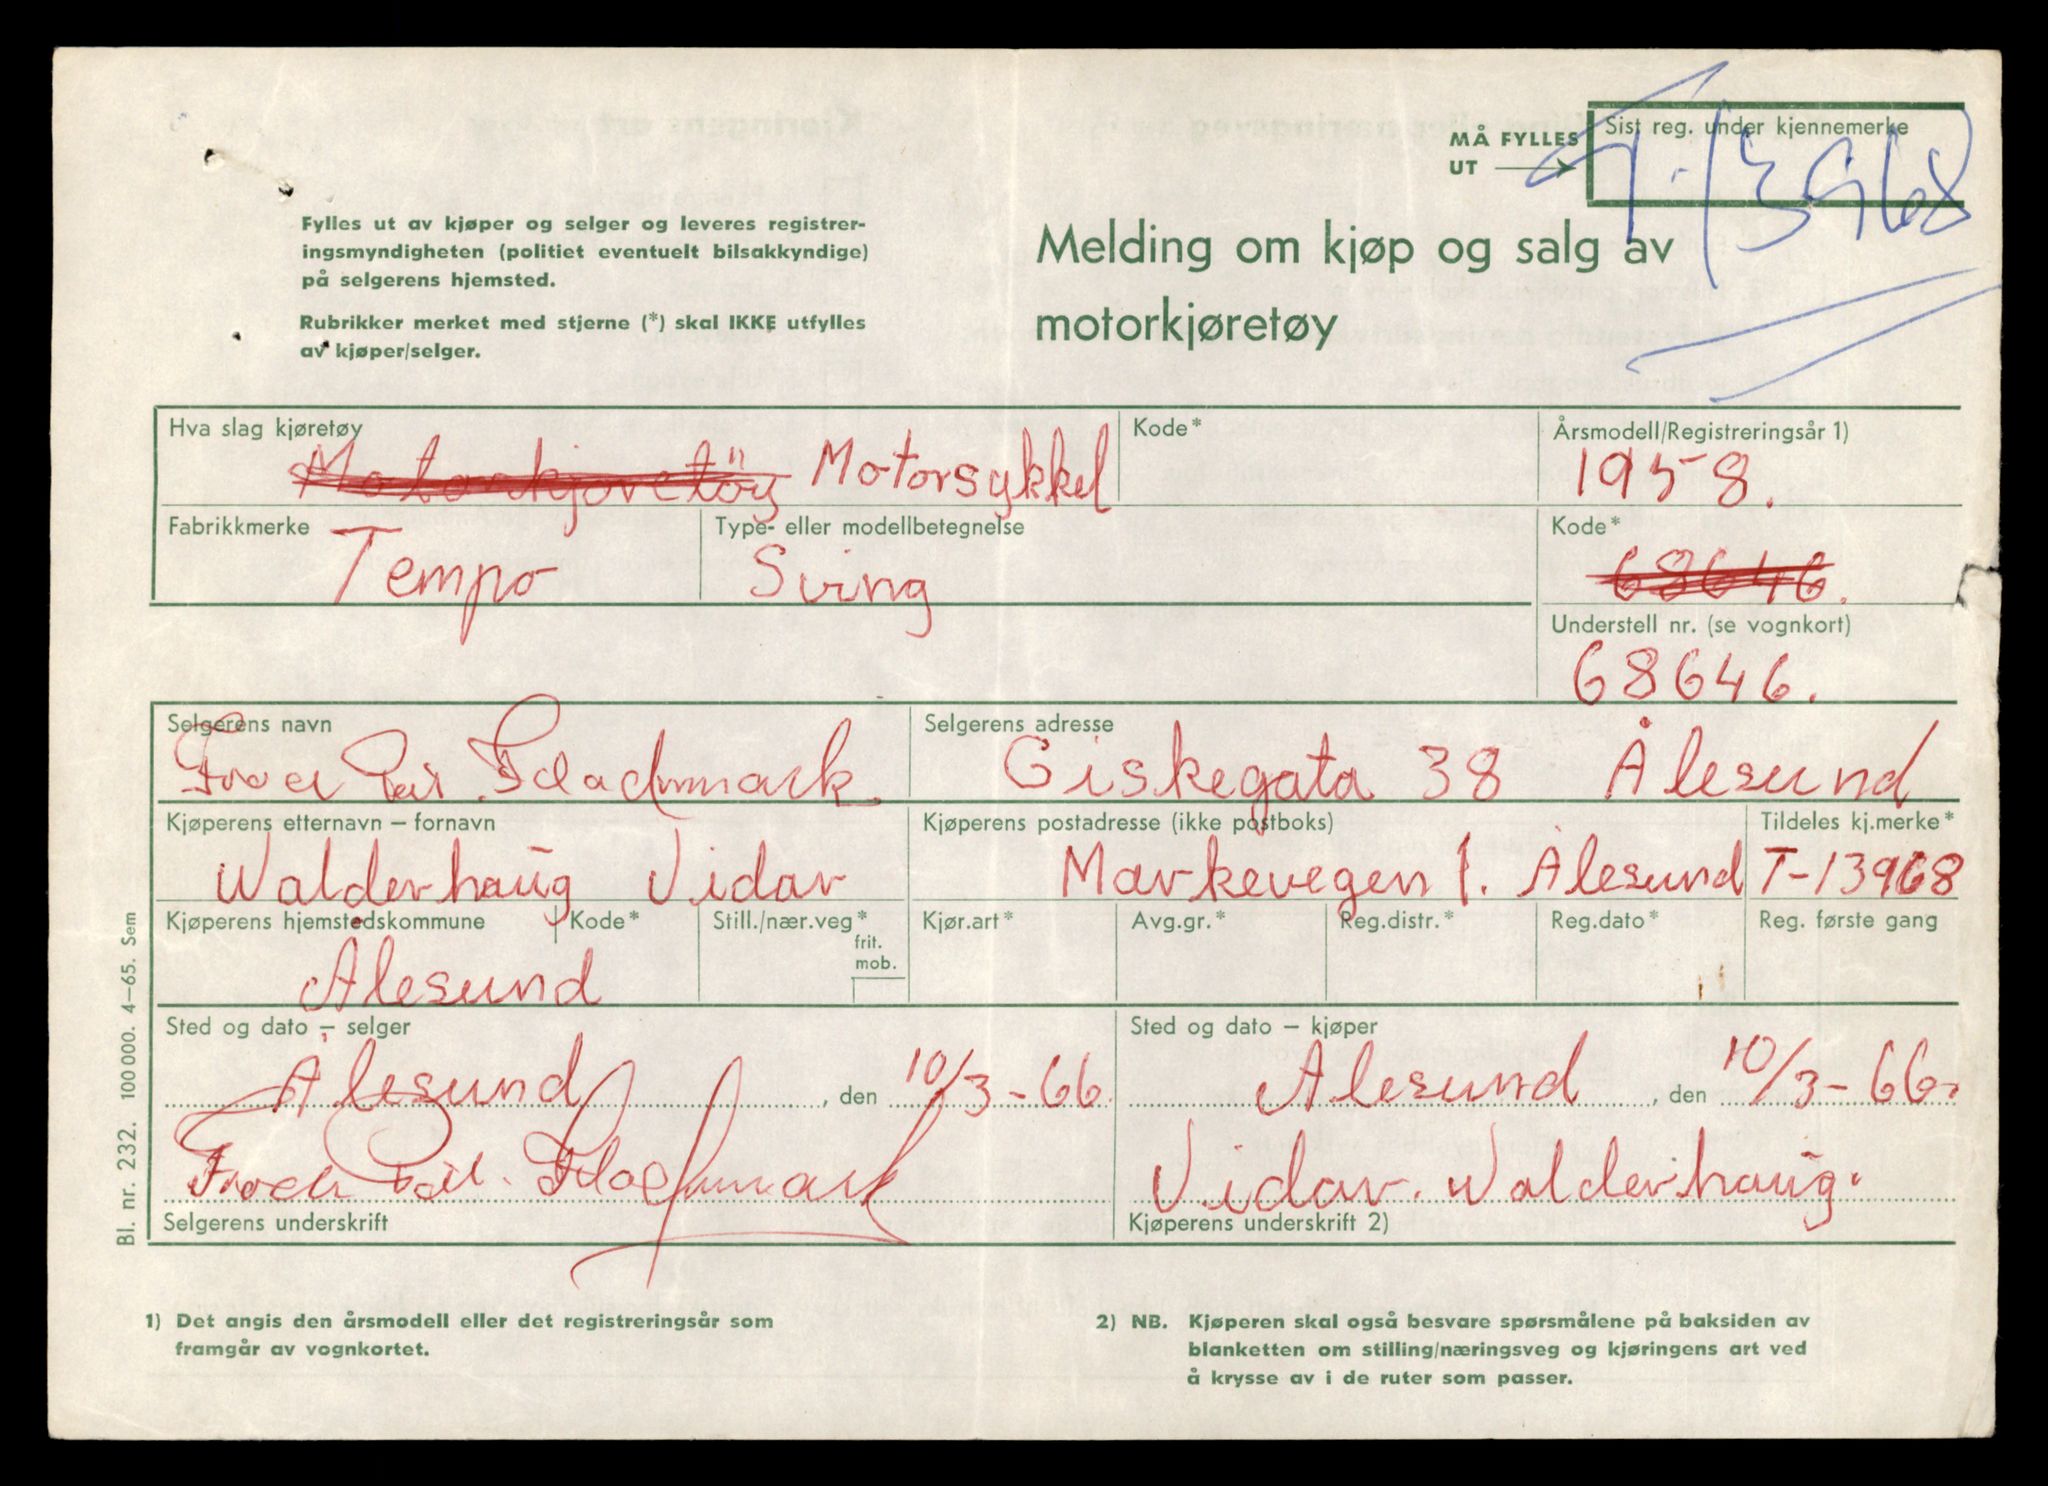 MÅ FYLLES UT
Sist reg. under kjennemerke
T-13968
Fylles ut av kjøper og selger og leveres registrer-
ingsmyndigheten (politiet eventuelt bilsakkyndige)
på selgerens hjemsted.
Rubrikker merket med stjerne (*) skal IKKE utfylles
av kjøper/selger.
Melding om kjøp og salg av
motorkjøretøy
Hva slag kjøretøy
Motorkjøretöy Motorsykkel
Kode*
Årsmodell/Registreringsår 1)
1958.
Fabrikkmerke
Tempo
Type- eller modellbetegnelse
Sving
Kode*
68646.
Understell nr. (se vognkort)
68646.
Selgerens navn
Selgerens adresse
Giskegata 38 Ålesund
Kjøperens etternavn – fornavn
Walderhaug Vidar
Kjøperens postadresse (ikke postboks)
Markevegen 1. Ålesund
Tildeles kj.merke*
T-13968
Kjøperens hjemstedskommune
Ålesund
Kode*
Still./nær.veg*
frit.
mob.
Kjør.art*
Avg.gr.*
Reg.distr.*
Reg.dato*
Reg. første gang
Sted og dato – selger
Ålesund, den 10/3-66.
Sted og dato – kjøper
Ålesund, den 10/3-66.
Vidar Walderhaug.
Selgerens underskrift
Kjøperens underskrift 2)
1) Det angis den årsmodell eller det registreringsår som
framgår av vognkortet.
2) NB. Kjøperen skal også besvare spørsmålene på baksiden av
blanketten om stilling/næringsveg og kjøringens art ved
å krysse av i de ruter som passer.
Bl. nr. 232. 100000. 4–65. Sem